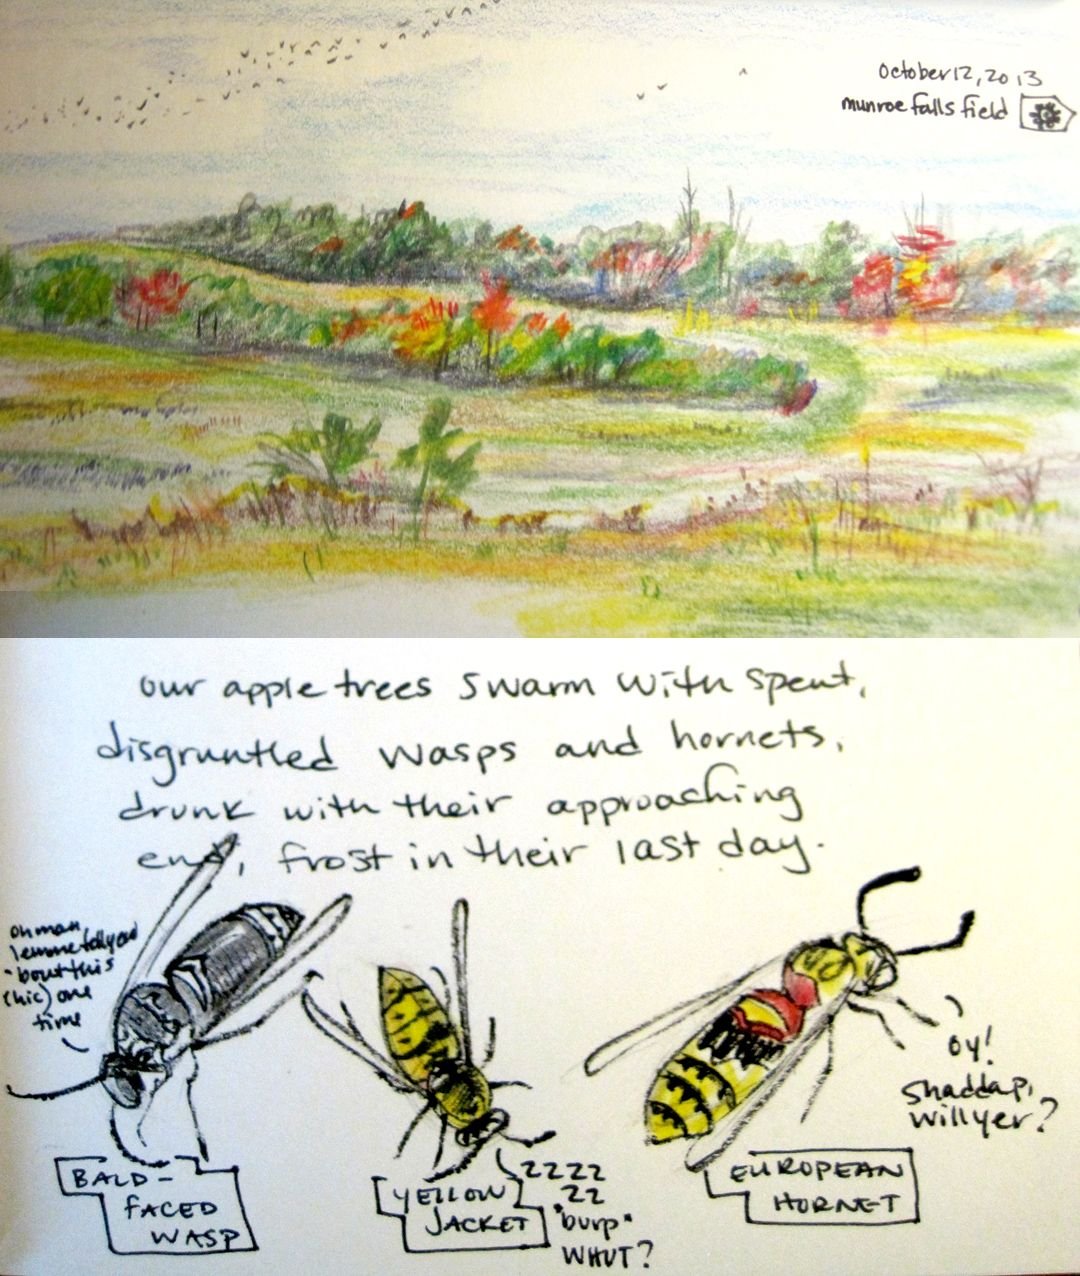 october 12, 2013
munroe falls field
our apple trees swarm with spent,
disgruntled wasps and hornets,
drunk with their approaching
end, frost in their last day.
oh man
lemme tell you
'bout this
(hic) one
time
oy!
Shaddap,
willyer?
BALD-
FACED
WASP
YELLOW
JACKET
ZZZZ
ZZ
*burp*
WHUT?
EUROPEAN
HORNET